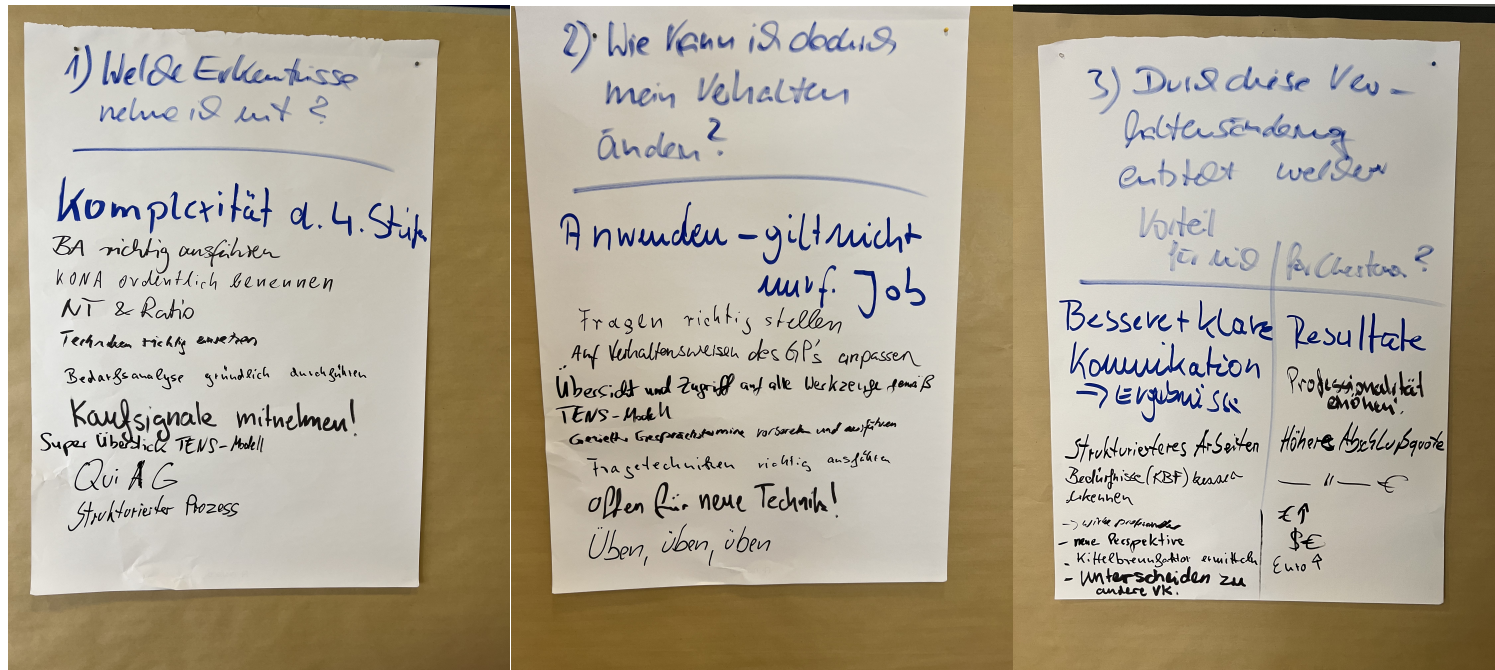 1) Welche Erkentnisse
nehme ich mit?
Komplexität d. 4. Stufen
BA richtig ausführen
KONA ordentlich benennen
NT & Ratio
Techniken richtig einsetzen
Bedarfsanalyse gründlich durchführen
Kaufsignale mitnehmen!
Super Überblick TENS-Modell
Qui AG
Strukturierter Prozess
2) Wie kann ich dadurch
mein Verhalten
ändern?
Anwenden - gilt nicht
nur f. Job
Fragen richtig stellen
Auf Verhaltensweisen des GP's anpassen
Übersicht und Zugriff auf alle Werkzeuge gemäß
TENS-Modell
Gezielte Gesprächstermine vorbereiten und ausführen
Fragetechniken richtig ausführen
Offen für neue Technik!
Üben, üben, üben
3) Durch diese Ver-
haltensänderung
entsteht welcher
Vorteil
für mich / für Chestera?
Bessere + klare
Komunikation
→ Ergebnisse
Strukturierteres Arbeiten
Bedürfnisse (KBF) besser
erkennen
-> wirke
- neue Perspektive
- Kittelbrennfaktor ermitteln
- Unterscheiden zu
andere VK.
Resultate
Professionalität
erhöhen.
Höhere Abschlußquote
— " — €
€ ↑
$€
Euro ↑